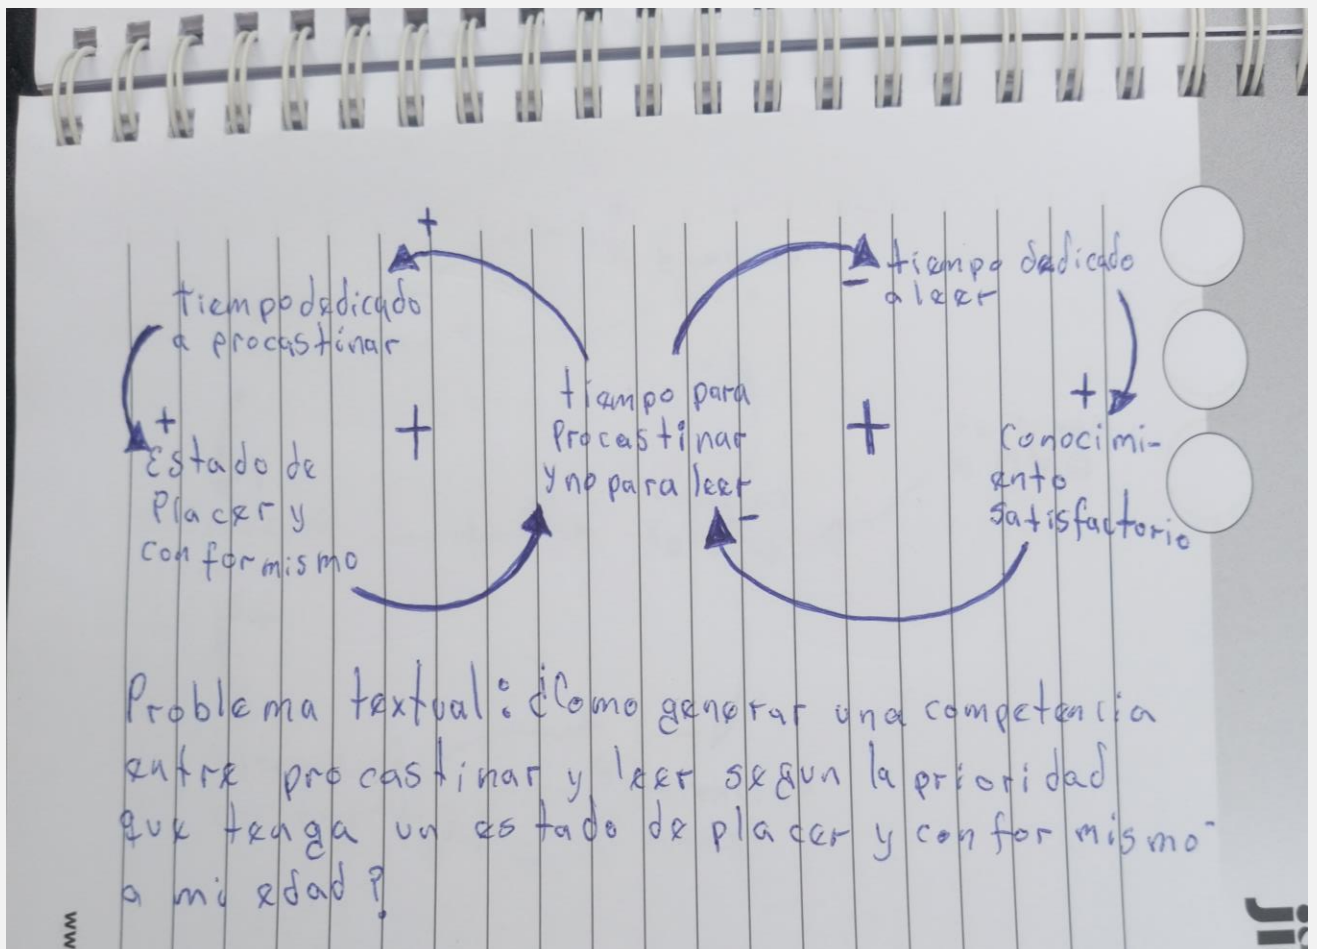 +
tiempo dedicado
a procastinar
+
Estado de
Placer y
conformismo
+
tiempo para
Procastinar
y no para leer
-
tiempo dedicado
a leer
-
+
+
Conocimi-
ento
satisfactorio
Problema textual: ¿Como generar una competencia
entre procastinar y leer segun la prioridad
que tenga un estado de placer y conformismo
a mi edad?
ww